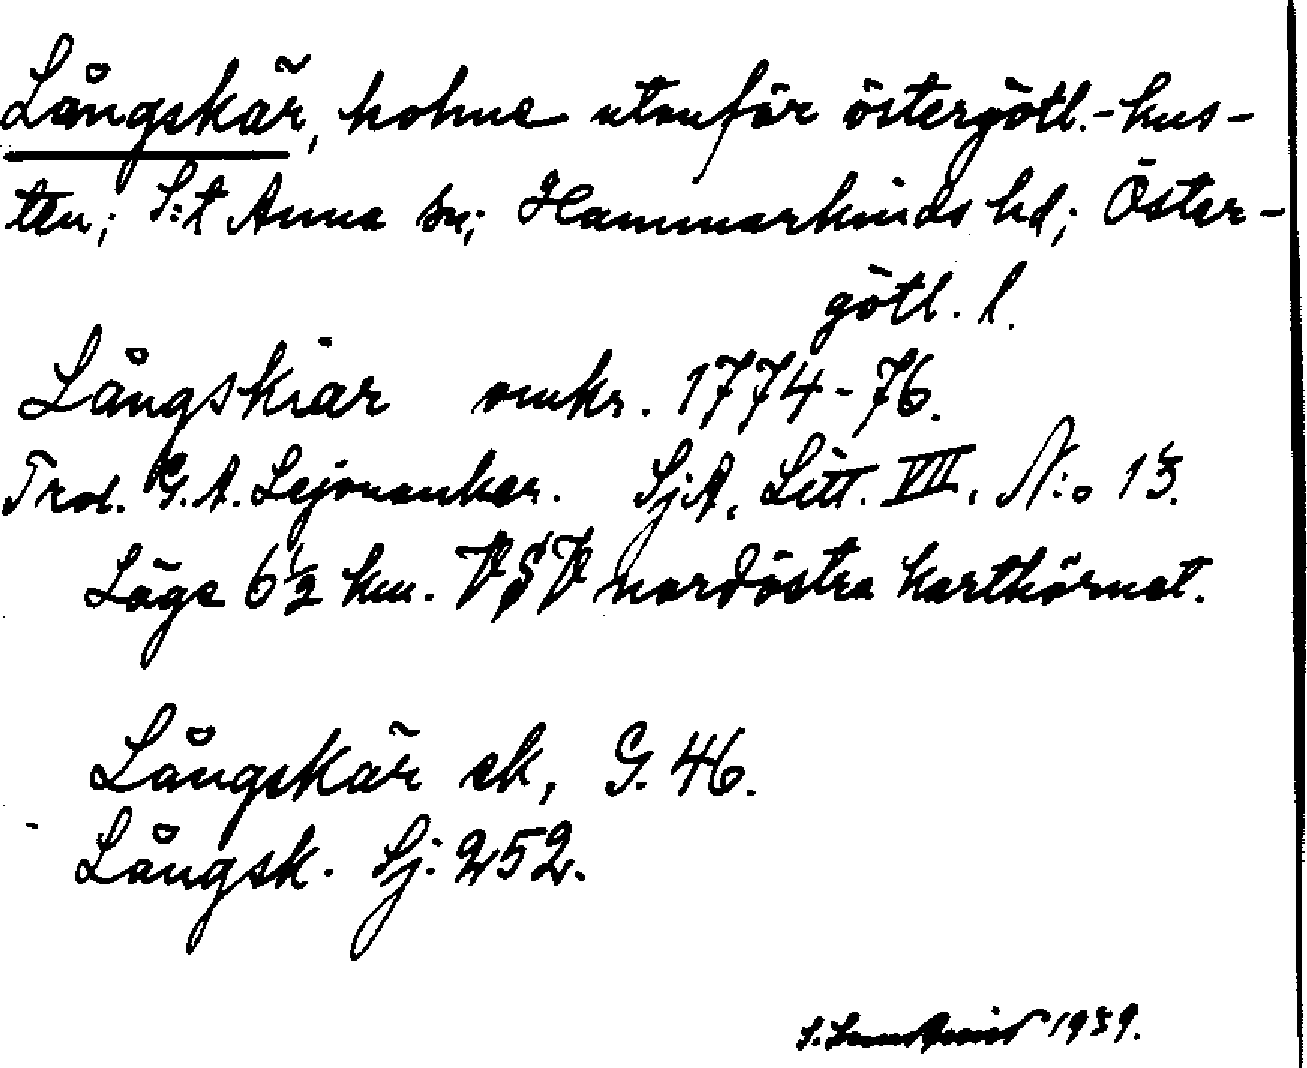 Långskär, holme utanför östergötl.-kus-
ten; S:t Anna sn; Hammarkinds hd; Öster-
götl. l.
Långskiär omkr. 1774-76.
Trol. G. A. Lejonankar. SjA, Litt. VII, N:o 13.
Läge 6½ km. VSV nordöstra karthörnet.
Långskär ek, G. 46.
Långsk. Sj: 252.
1939.